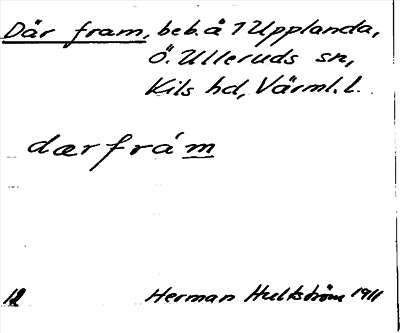 Där fram, beb. å 1 Upplanda,
Ö. Ulleruds sn,
Kils hd, Värml. l.
dærfrám
12 Herman Hultström 1911